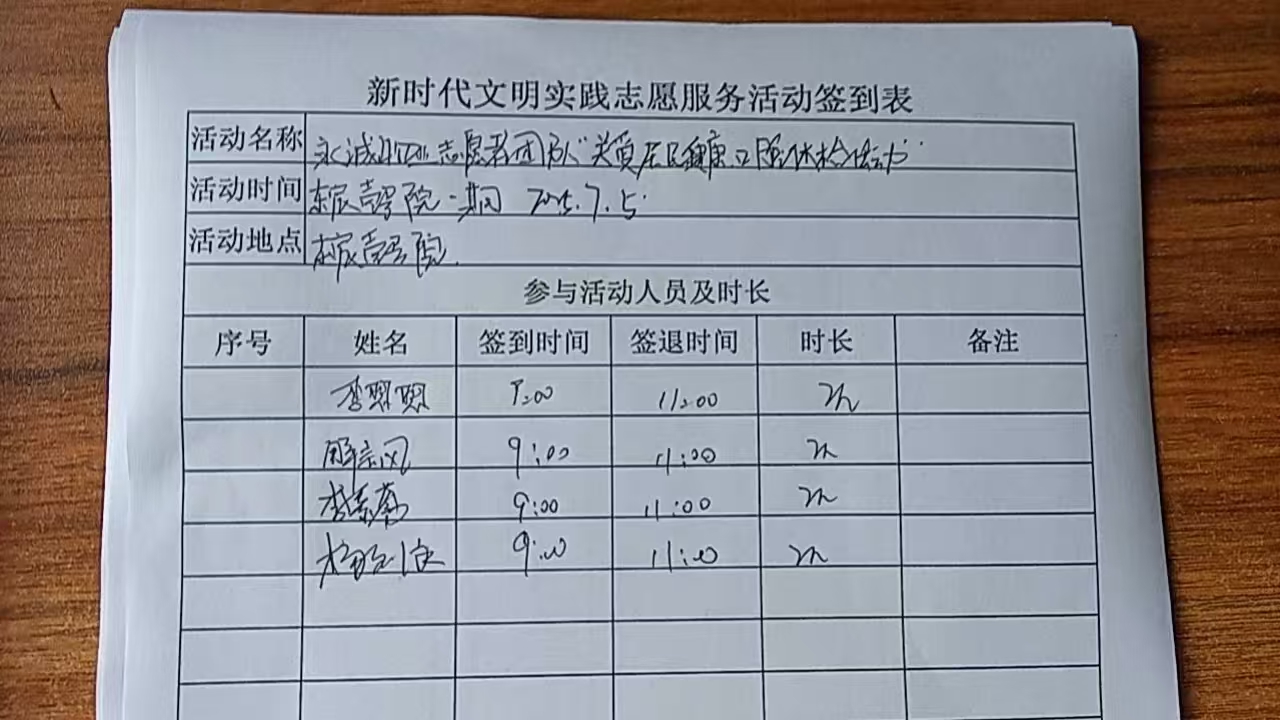 新时代文明实践志愿服务活动签到表
活动名称 永诚物业志愿者团队"关爱居民健康口腔体检活动"
活动时间 东辰壹号院一期 2025.7.5
活动地点 东辰壹号院
参与活动人员及时长
序号 姓名 签到时间 签退时间 时长 备注
9:00 11:00 2h
9:00 11:00 2h
9:00 11:00 2h
9:00 11:00 2h